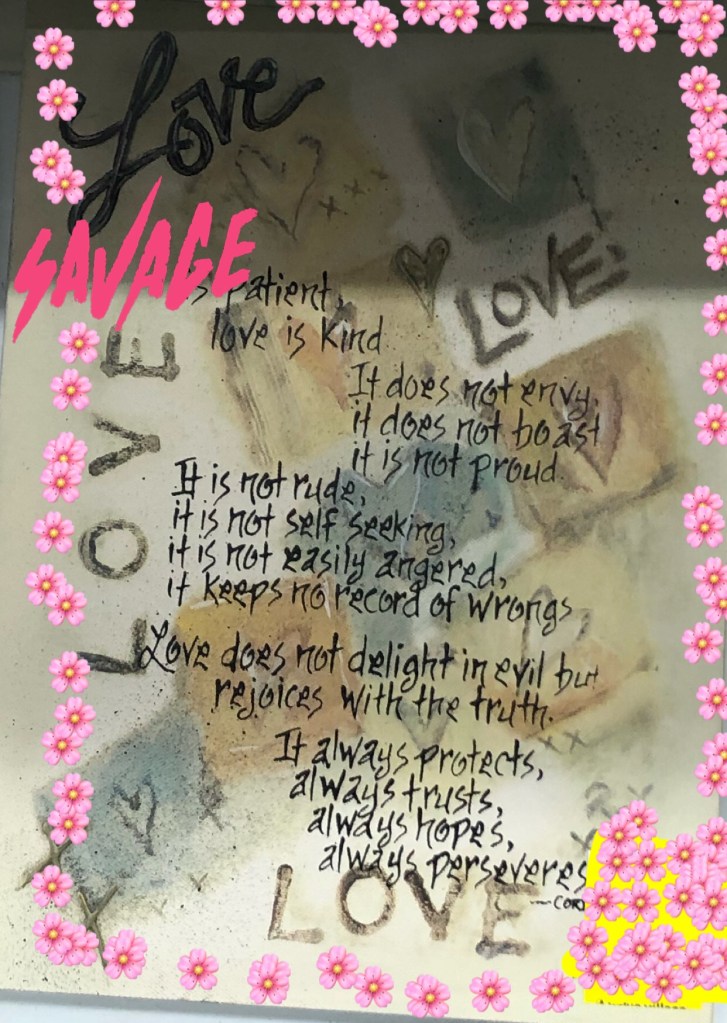 Love
SAVAGE
is patient,
love is kind
LOVE
LOVE
It does not envy,
it does not boast
it is not proud.
It is not rude,
it is not self seeking,
it is not easily angered,
it keeps no record of wrongs
Love does not delight in evil but
rejoices with the truth.
It always protects,
always trusts,
always hopes,
always perseveres
LOVE